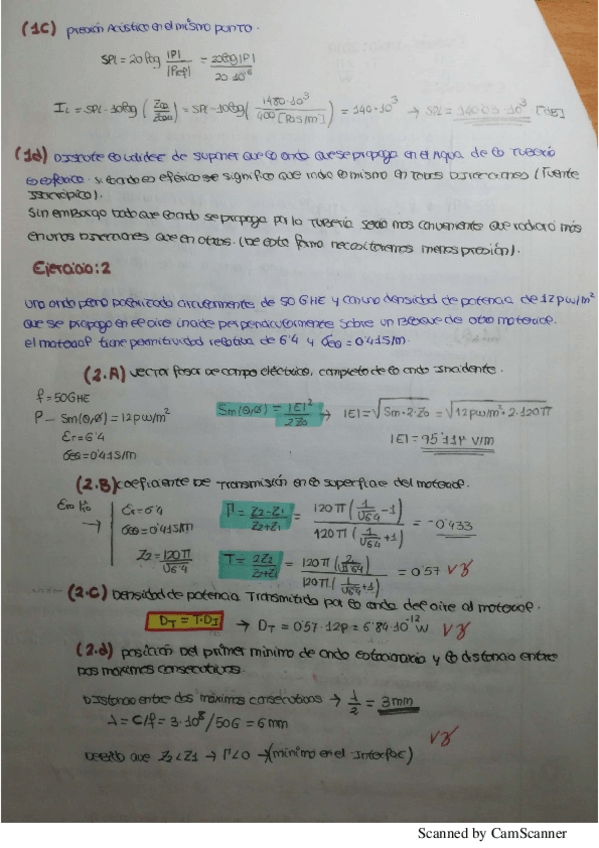 (1C) presión Acústico en el mismo punto.
SPL = 20log |P| / |Pref| = 20log|P| / 20·10⁻⁶
IL = SPL - 10log (Z0a / Z0aa) = SPL - 10log ( 1480·10³ / 400 [Rays/m] ) = 140·10³ → SPL = 140'03·10³ [dB]
(1d) Discute la validez de suponer que la onda que se propaga en el Agua de la Tubería
es esférica. si la onda es esférica se significa que radia lo mismo en todas direcciones (Fuente
Isotrópica).
Sin embargo dado que la onda se propaga por la Tubería sería más conveniente que radiara más
en unas direcciones que en otras. (De esta forma necesitaremos menos presión).
Ejercicio: 2
una onda plana polarizada circularmente de 50 GHz y con una densidad de potencia de 12pw/m²
que se propaga en el aire incide perpendicularmente sobre un bloque de otro material.
el material tiene permitividad relativa de 6'4 y σ = 0'41S/m.
(2.A) vector fasor de campo eléctrico, completo de la onda Incidente.
f = 50GHz
P - Sm(θ,ø) = 12pw/m²
εr = 6'4
= 0'41S/m
Sm(θ,ø) = |E|² / 2Z0 → |E| = √Sm·2·Z0 = √12pw/m²·2·120π
|E| = 95'11µ v/m
(2.B) coeficiente De transmisión en la superficie del material.
εr = 6'4
= 0'41S/m
Z2 = 120π / √6'4
Γ = Z2 - Z1 / Z2 + Z1 = 120π (1/√6'4 - 1) / 120π (1/√6'4 + 1) = -0'433
T = 2Z2 / Z2 + Z1 = 120π (2/√6'4) / 120π (1/√6'4 + 1) = 0'57
(2.C) Densidad de potencia Transmitida por la onda del aire al material.
DT = T·DI → DT = 0'57·12p = 6'84·10⁻¹² W
(2.d) posición del primer mínimo de onda estacionaria y la distancia entre
dos máximos consecutivos.
Distancia entre dos máximos consecutivos → λ/2 = 3mm
λ = C/f = 3·10⁸/50G = 6mm
puesto que Z2 < Z1 → Γ<0 → (mínimo en el Interfaz)
Scanned by CamScanner